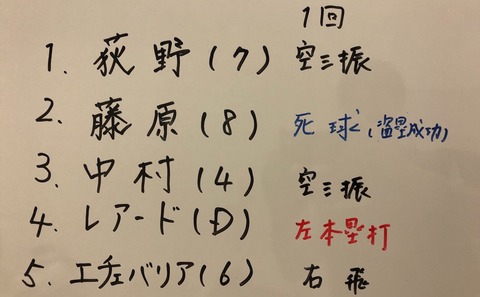 1回
1. 荻野(7) 空三振
2. 藤原(8) 死球(盗塁成功)
3. 中村(4) 空三振
4. レアード(D) 左本塁打
5. エチェバリア(6) 右飛